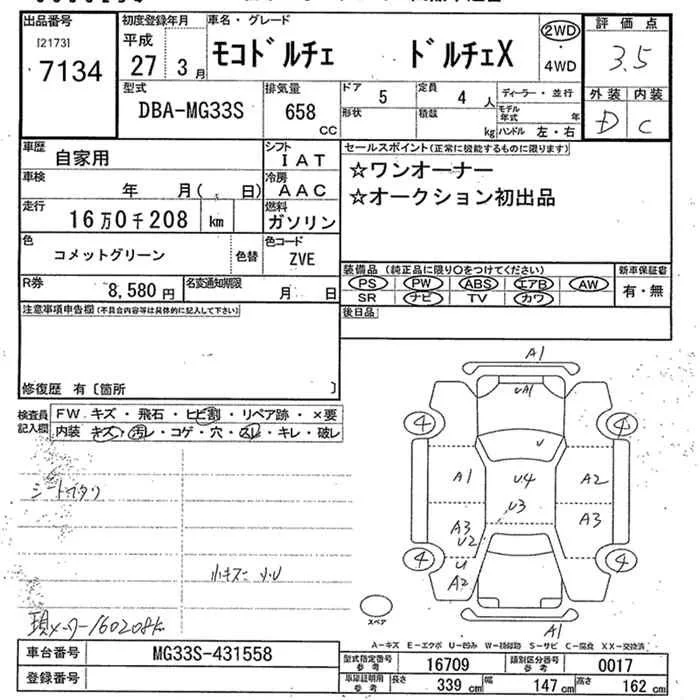 出品番号
[2173]
7134
初度登録年月
平成
27 3月
車名・グレード
モコドルチェ ドルチェX
2WD
・
4WD
評価点
3.5
外装 内装
D C
型式
DBA-MG33S
排気量
658 cc
ドア 5
定員 4 人
形状
積載 kg
ディーラー・並行
モデル年式 年
ハンドル 左・右
車歴
自家用
シフト
IAT
車検
年 月( 日)
冷房
AAC
走行
16万0千208 km
燃料
ガソリン
色
コメットグリーン
色替
色コード
ZVE
R券
8,580 円
名変通知期限
月 日
セールスポイント(正常に機能するものに限ります)
☆ワンオーナー
☆オークション初出品
装備品(純正品に限り○をつけてください)
PS PW ABS エアB AW
SR ナビ TV カワ
新車保証書
有・無
後日品
注意事項申告欄(不具合内容等は具体的に記入して下さい)
修復歴 有〔箇所 〕
検査員
記入欄
FW. キズ・飛石・ヒビ割・リペア跡・×要
内装 キズ・汚レ・コゲ・穴・スレ・キレ・破レ
シートヘタリ
小キズ 小U
現メーター160208k
A1
UA1
4 4
U
A1 U4 A2
U3
A3 A3
U2
4 U 4
A2
スペア
A1
A-キズ E-エクボ U-凹み W-補修跡 S-サビ C-腐食 XX-交換済
車台番号
MG33S-431558
登録番号
型式指定番号
参考
16709
類別区分番号
参考
0017
車庫証明用
参考
長さ 339 cm
幅 147 cm
高さ 162 cm